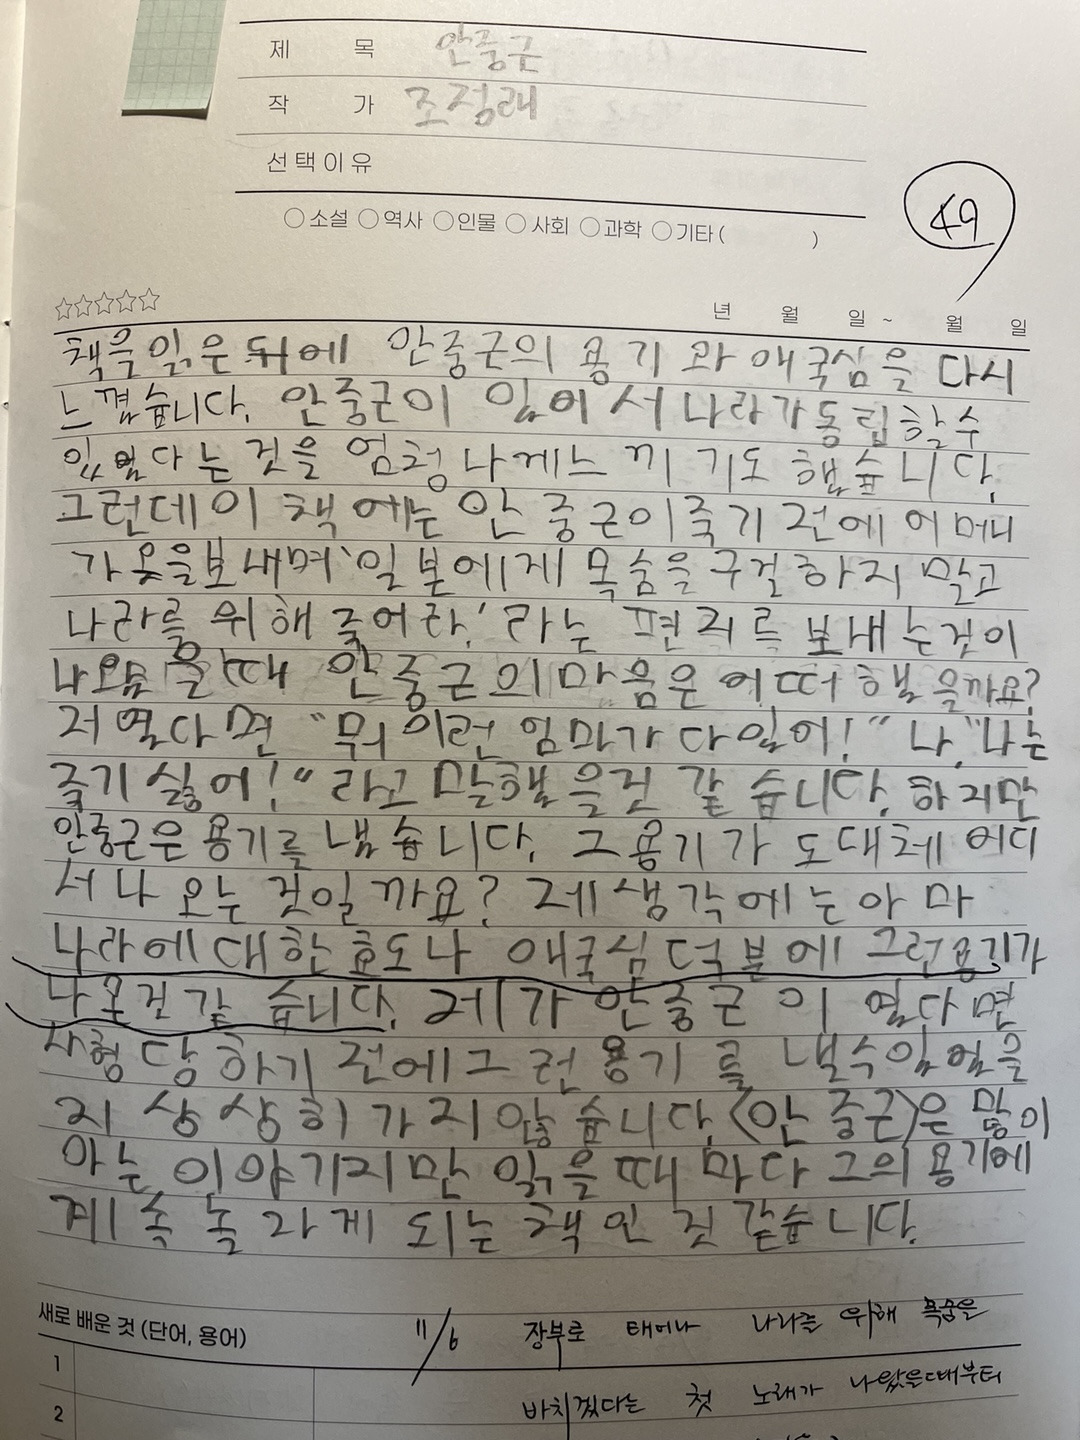 제 목 안중근
작 가 조정래
선택이유
○소설 ○역사 ○인물 ○사회 ○과학 ○기타( )
49
☆☆☆☆☆
년 월 일 ~ 월 일
책을 읽은 뒤에 안중근의 용기과 애국심을 다시
느꼈습니다. 안중근이 있어서 나라가 독립할수
있었다는 것을 엄청나게 느끼기도 했습니다.
그런데 이 책에는 안중근이 죽기 전에 어머니
가 옷을 보내며 '일본에게 목숨을 구걸하지 말고
나라를 위해 죽어라.' 라는 편지를 보내는것이
나오는데 안중근의 마음은 어떠했을까요?
저였다면 "뭐 이런 엄마가 다있어!" 나, "나는
죽기 싫어!" 라고 말했을것 같습니다. 하지만
안중근은 용기를 냈습니다. 그 용기가 도대체 어디
서 나오는 것일까요? 제 생각에는 아마
나라에 대한 효도나 애국심 덕분에 그런용기가
나온것 같습니다. 제가 안중근이 였다면
사형 당하기 전에 그런 용기를 낼수있었을
지 상상히 가지 않습니다. <안중근>은 많이
아는 이야기지만 읽을 때 마다 그의 용기에
계속 놀라게 되는 책인 것 같습니다.
새로 배운 것 (단어, 용어)
1
2
11/6 장부로 태어나 나라를 위해 목숨을
바치겠다는 첫 노래가 나왔을때부터